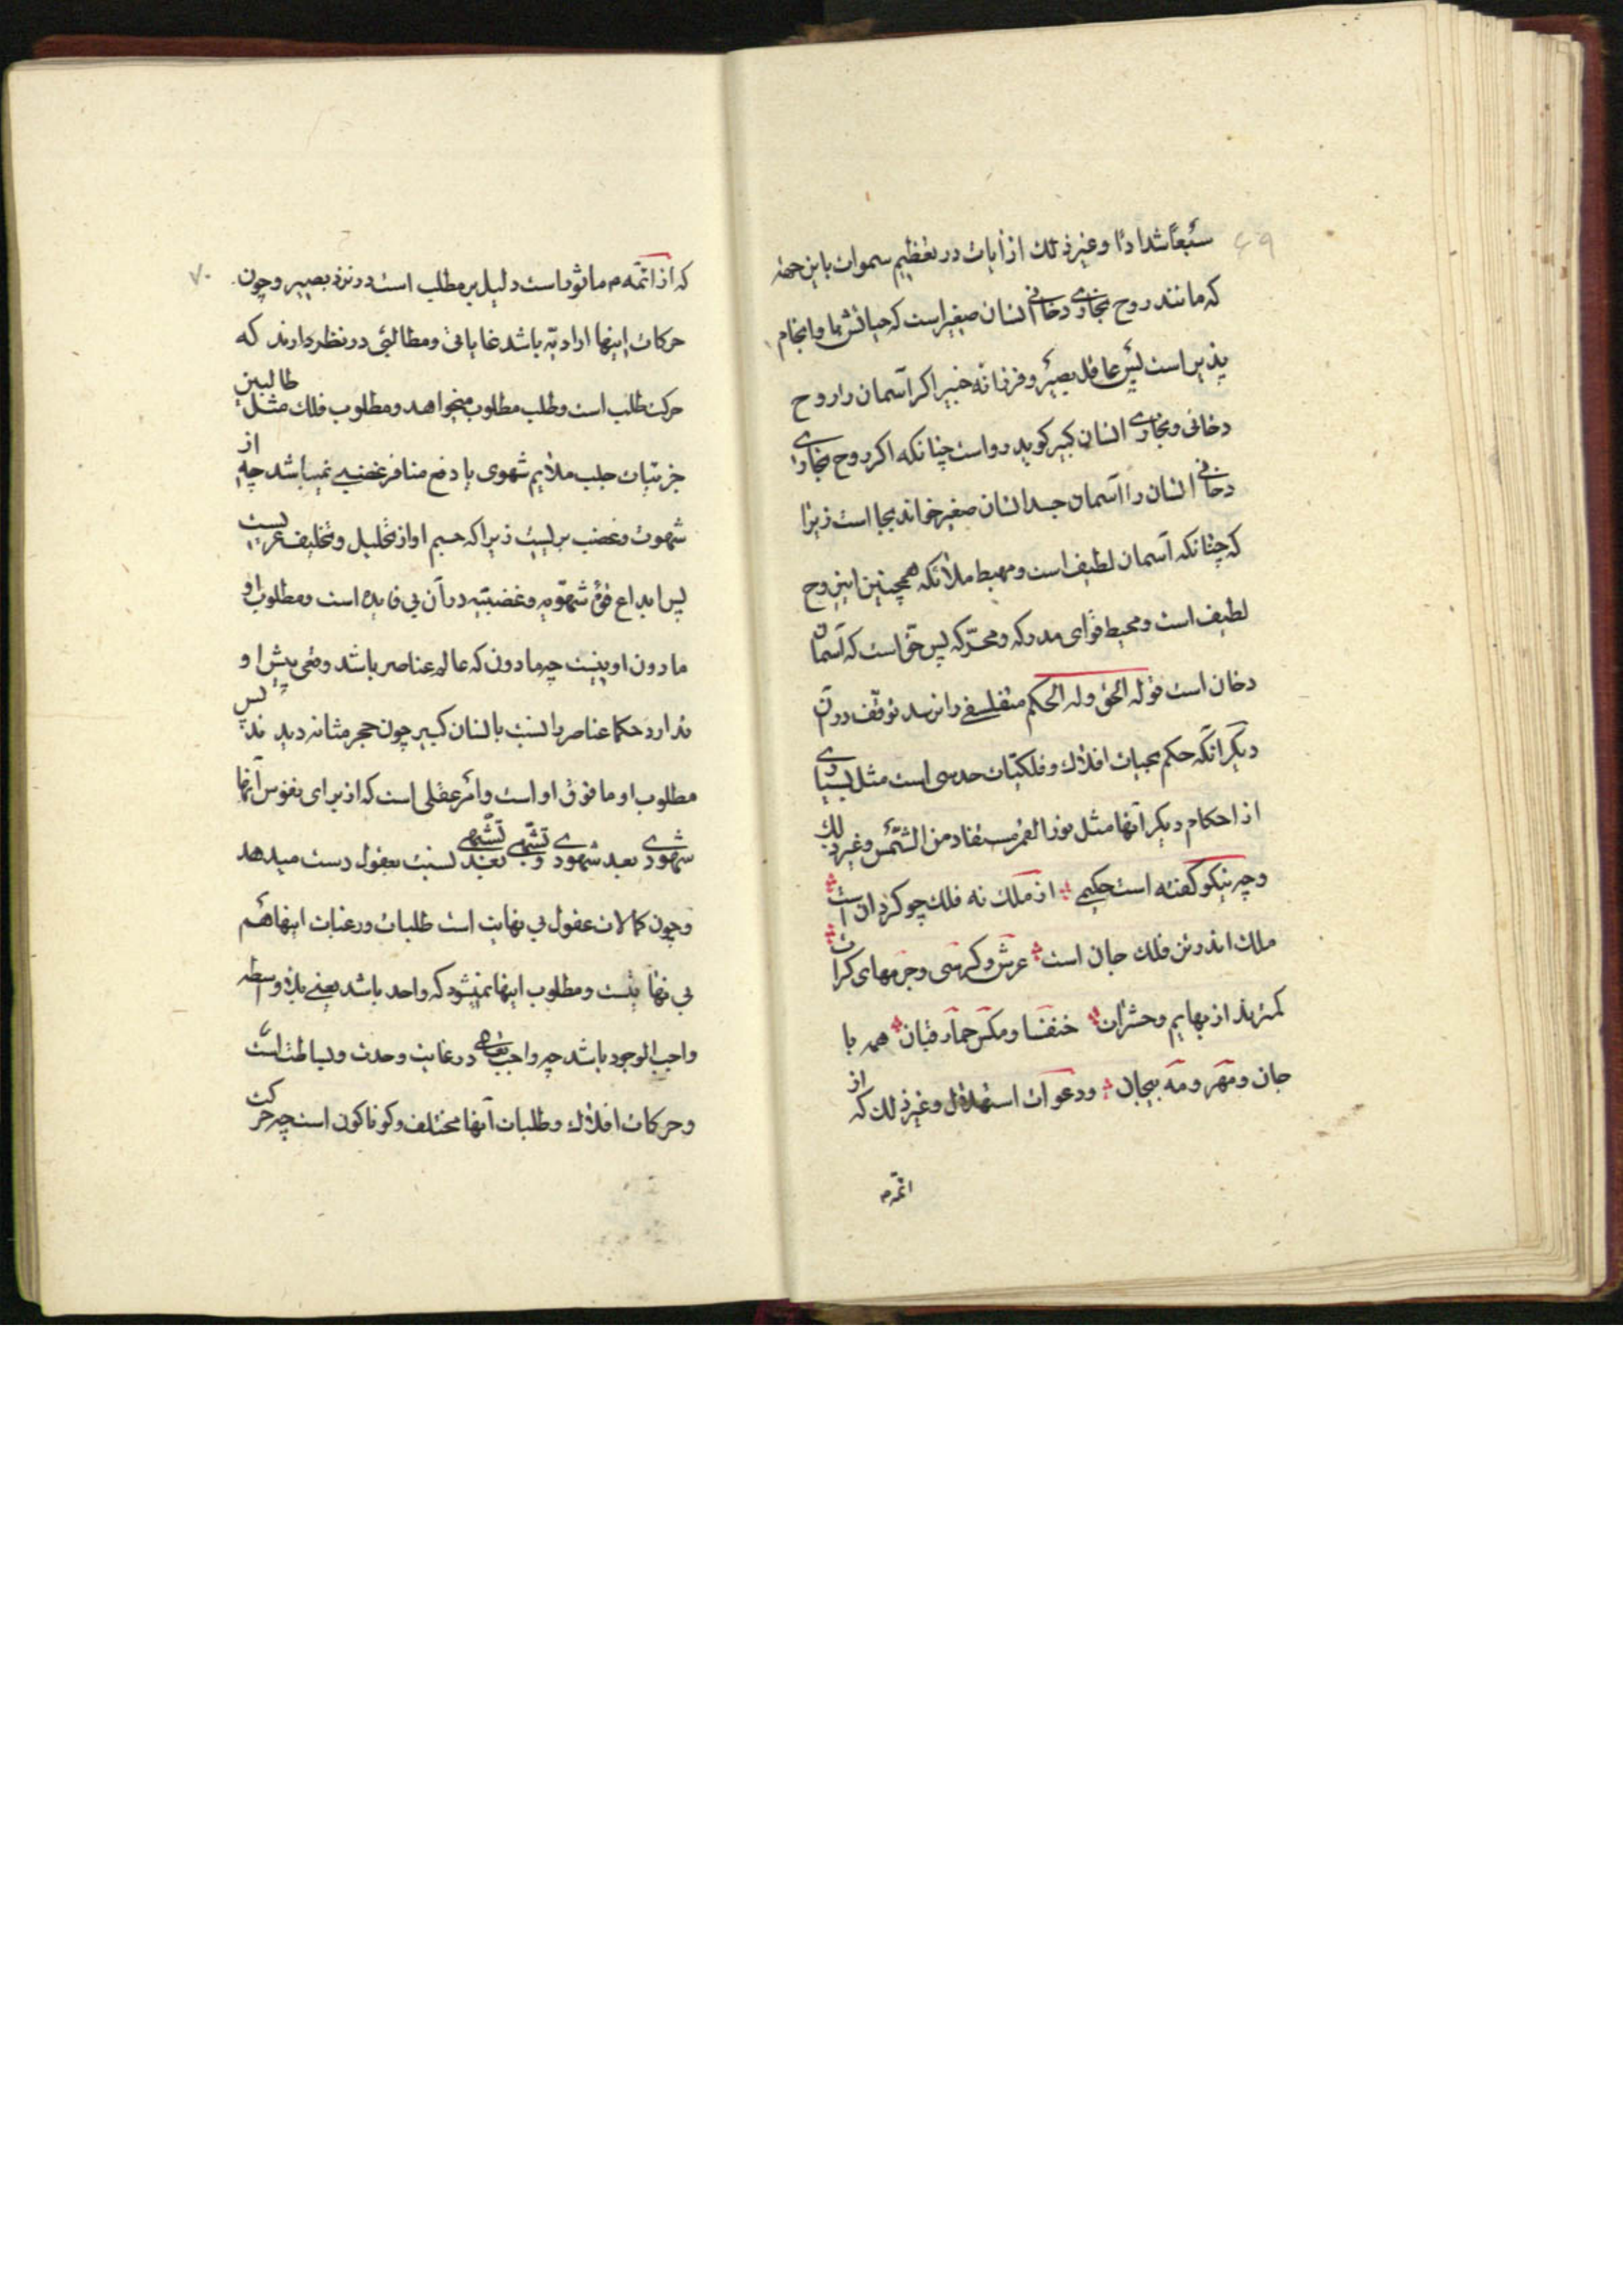 ۶۹
سَبعاً شدادًا و غیر ذلک از آیات در تعظیم سموات باین جهة
که مانند روح بخاری دخانی انسان صغیر است که حیاتش نما و انجام
پذیر است پس عاقل بصیر و فرزانه خبیر اگر آسمان را روح
دخانی و بخاری انسان کبیر گوید رواست چنانکه اگر روح بخاری
دخانی انسان را آسمان جسد انسان صغیر خواند بجا است زیرا
که چنانکه آسمان لطیف است و مهبط ملائکه همچنین این روح
لطیف است و محیط قوای مدرکه و محرّکه پس حق است که آسمان
دخان است قوله الحق و له الحکم متفلسفی را نرسد توقف در آن
دیگر آنکه حکم بحیات افلاک و فلکیّات حدسی است مثل بسیاری
از احکام دیگر آنها مثل نور القمر مستفاد من الشّمس و غیر ذلک
و چه نیکو گفته است حکیمی از ملک نه فلک چو گردان است
ملک اندر تن فلک جان است عرش و کرسی و جرمهای کرات
کمترند از بهایم و حشرات خنفسا و مگس حمار قبان همه با
جان و مهر و مه بیجان و دعوات استهلال و غیر ذلک که از
ائمّه م
۷۰
که از ائمّه م ماثور است دلیل بر مطلب است در نزد بصیر و چون
حرکات اینها ارادیّه باشد غایاتی و مطالبی در نظر دارند که
حرکت طلب است و طلب مطلوب میخواهد و مطلوب فلک مثل طالبین
جزئیات جلب ملایم شهوی یا دفع منافر غضبی نمیباشد چه از
شهوت و غضب بریست زیرا که جسم او از تحلیل و تخلیف عریست
پس ابداع قوهٔ شهویّه و غضبیّه در آن بی فایده است و مطلوب او
مادون او نیست چه مادون که عالم عناصر باشد وقعی پیش او
ندارد حکما عناصر را نسبت بانسان کبیر چون حجر مثانه دیدند پس
مطلوب او ما فوق او است و امر عقلی است که از برای نفوس آنها
شهودی بعد شهودی و تشبّهی بعید تشبّهی نسبت بعقول دست میدهد
و چون کمالات عقول بی نهایت است طلبات و رغبات اینها هم
بی نهایتست و مطلوب اینها نمیشود که واحد باشد یعنی بلا واسطه
واجب الوجود باشد چه واجب تعالی در غایت وحدت و بساطت است
و حرکات افلاک و طلبات آنها مختلف و گوناگون است چه حرکت